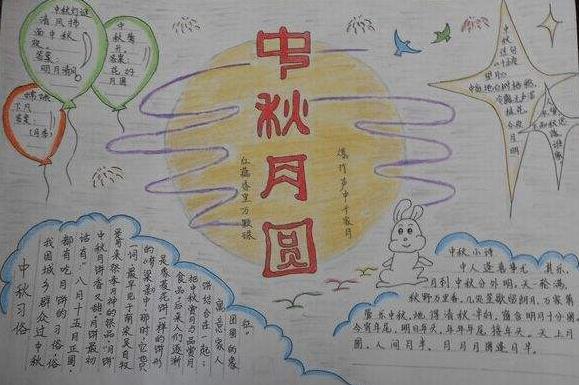 中秋月圆
中秋灯谜
清风拂
面中秋
夜。
答案：
明月清风
中
秋菊
开。
答案：
花好
月圆
嫦娥
下凡
答案：
（月季）
红藕香里万顷珠
爆竹声中千家月
中秋
十五夜
望月
中庭地白树栖鸦，
冷露无声湿
桂花。
今夜
月
明
人尽望，
不知秋思
落谁家
中秋习俗
我国城乡群众过中秋
都有吃月饼的习俗，俗
话有"八月十五月正圆，
中秋月饼香又甜"月饼最初
是用来祭奉月神的祭品"月饼"
一词，最早见于南宋吴自牧
的《梦粱录》中，那时，它也只
是像菱花饼一样的饼形
食品。后来人们逐渐
把中秋赏月与品尝月
饼结合在一起，
寓意家人
团圆的象
征。
中秋小诗
中人逢喜事尤其乐，
月到中秋分外明，天轮满，
秋野万里香，几度星歇留明月，万家
乐中秋，地得清秋半，
今宵年尾，明日年头，年年年尾接年头。天上月
圆，人间月半，月月月圆逢月半。